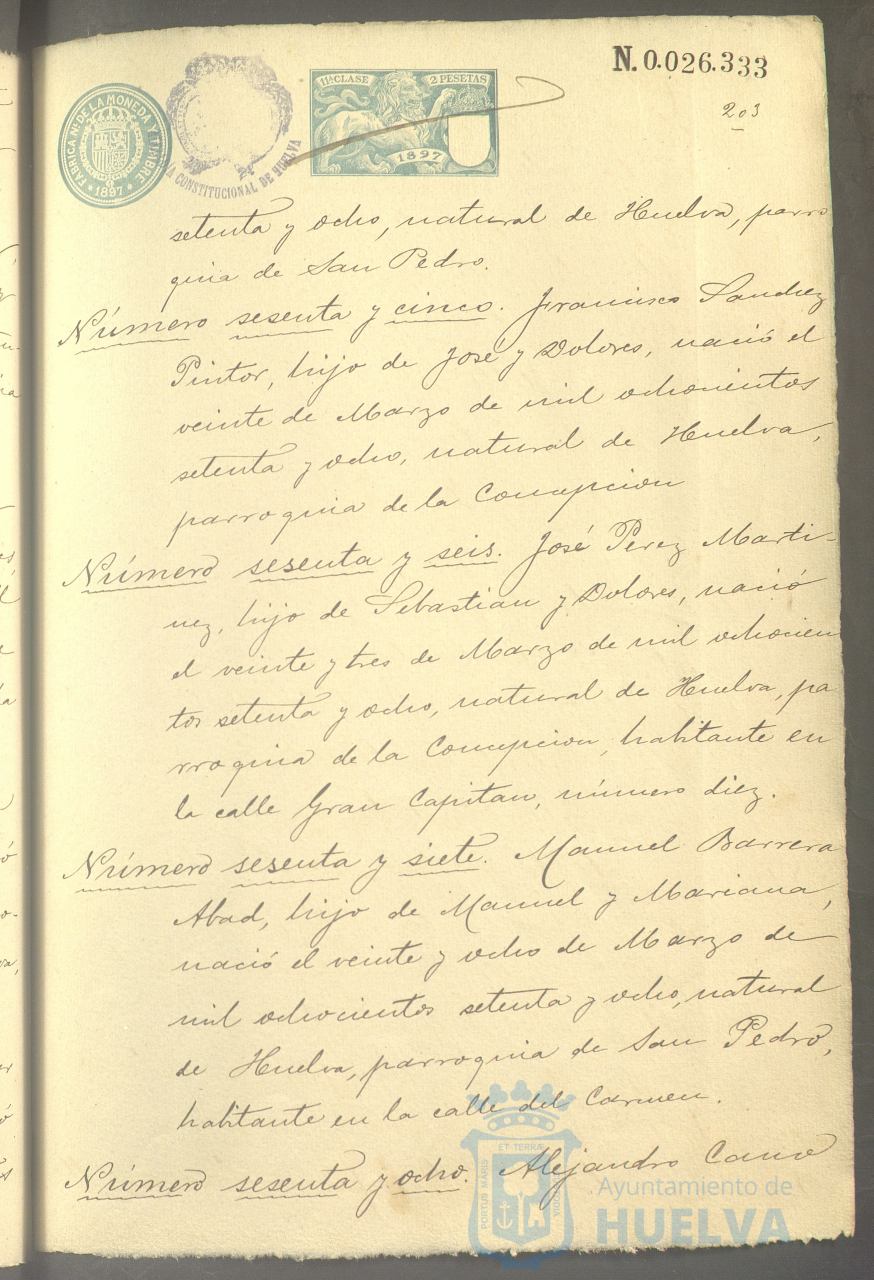 N. 0.026.333
203
FABRICA Nal DE LA MONEDA Y TIMBRE
* 1897 *
CONSTITUCIONAL DE HUELVA
11ª CLASE 2 PESETAS
1897
setenta y ocho, natural de Huelva, parro
quia de San Pedro.
Número sesenta y cinco. Francisco Sanchez
Pintor, hijo de José y Dolores, nació el
veinte de Marzo de mil ochocientos
setenta y ocho, natural de Huelva,
parroquia de la Concepcion
Número sesenta y seis. José Perez Marti-
nez, hijo de Sebastian y Dolores, nació
el veinte y tres de Marzo de mil ochocien
tos setenta y ocho, natural de Huelva, pa
rroquia de la Concepcion, habitante en
la calle Gran Capitan, número diez.
Número sesenta y siete. Manuel Barrera
Abad, hijo de Manuel y Mariana,
nació el veinte y ocho de Marzo de
mil ochocientos setenta y ocho, natural
de Huelva, parroquia de San Pedro,
habitante en la calle del Carmen.
Número sesenta y ocho. Alejandro Cano
PORTUS MARIS
ET TERRÆ
CUSTODIA
Ayuntamiento de
HUELVA